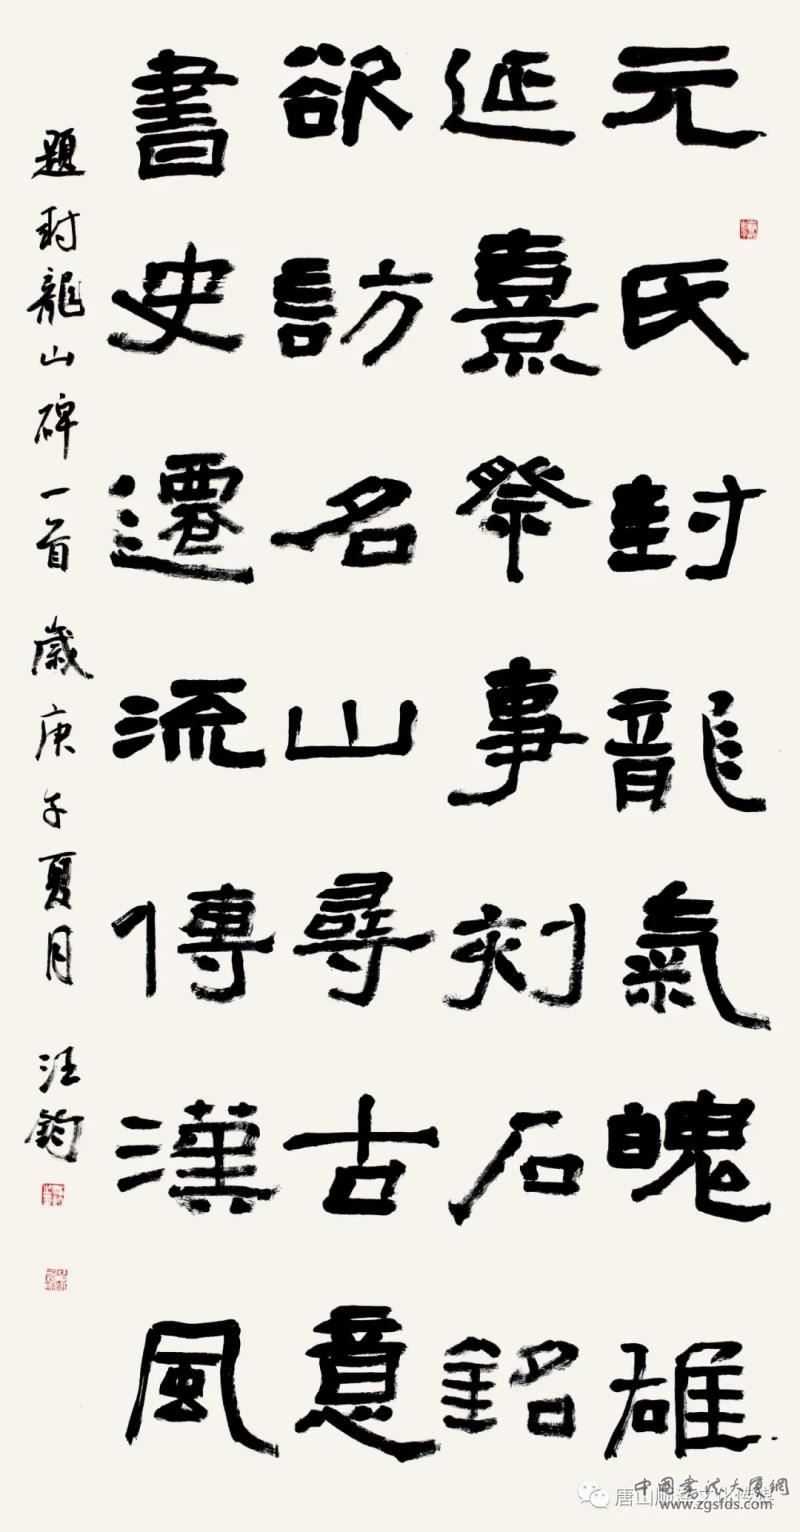 元氏封龍氣魄雄
延熹祭事刻石銘
欲訪名山尋古意
書史遷流傳漢風
題封龍山碑一首 歲庚子夏月 汪鈞
中國書法大厦網
www.zgsfds.com
唐山